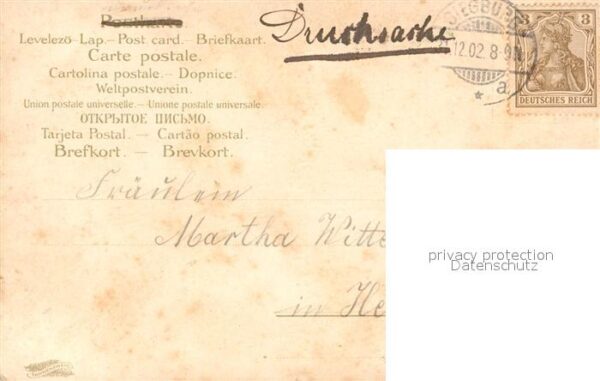 Postkarte
Drucksache
Levelező-Lap. – Post card. – Briefkaart.
Carte postale.
Cartolina postale. – Dopnice.
Weltpostverein.
Union postale universelle. – Unione postale universale.
ОТКРЫТОЕ ПИСЬМО.
Tarjeta Postal. – Cartão postal.
Brefkort. – Brevkort.
12.02. 8-9
* a
3 3
DEUTSCHES REICH
Fräulein
Martha Witte
in He
privacy protection
Datenschutz